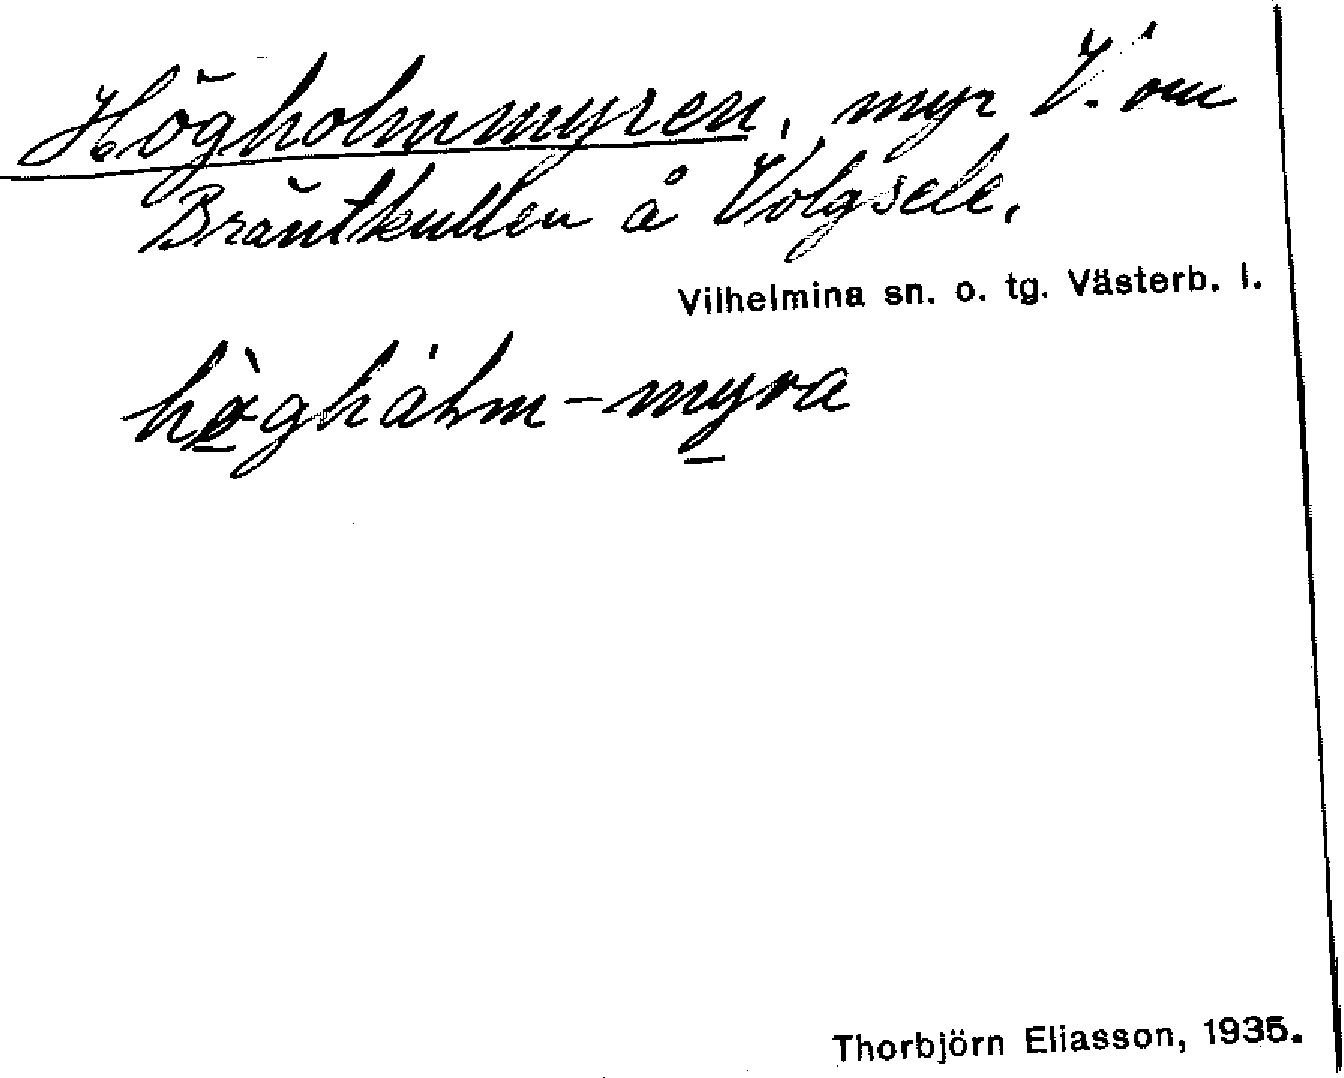 Högholmmyren, myr V. om
Bräntkullen å Volgsele.
Vilhelmina sn. o. tg. Västerb. l.
hø̀ghåḷm-myra
Thorbjörn Eliasson, 1935.